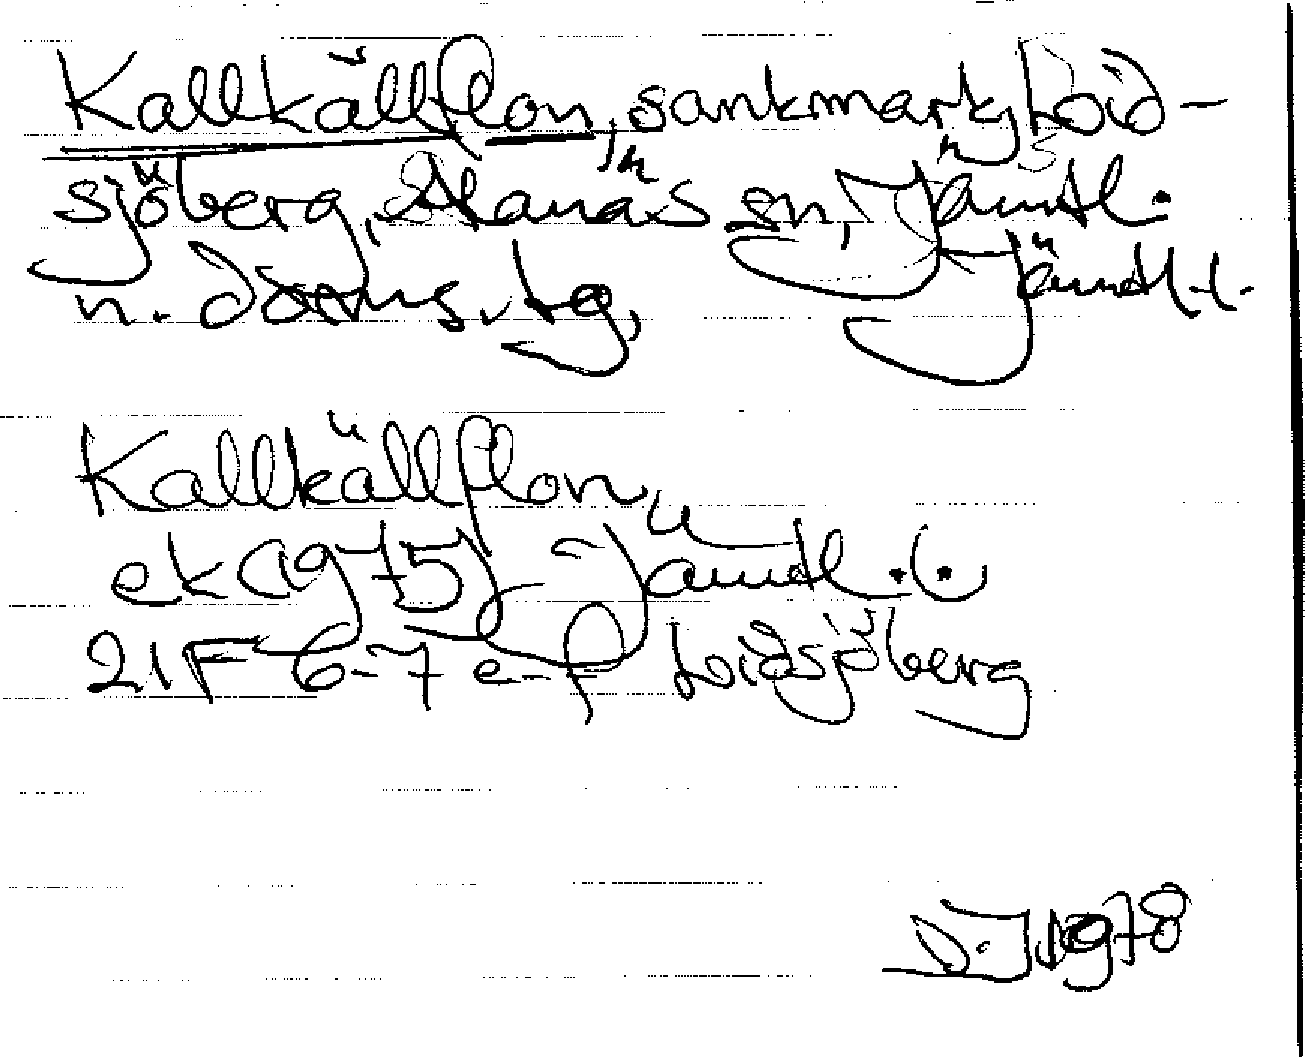 Kallkällflon, sankmark, Lid-
sjöberg, Alanäs sn, Jämtl.
n. doms. tg, Jämtl. l.
Kallkällflon,
ek (1975) Jämtl. l.
21F 6-7 e-f Lidsjöberg
1978